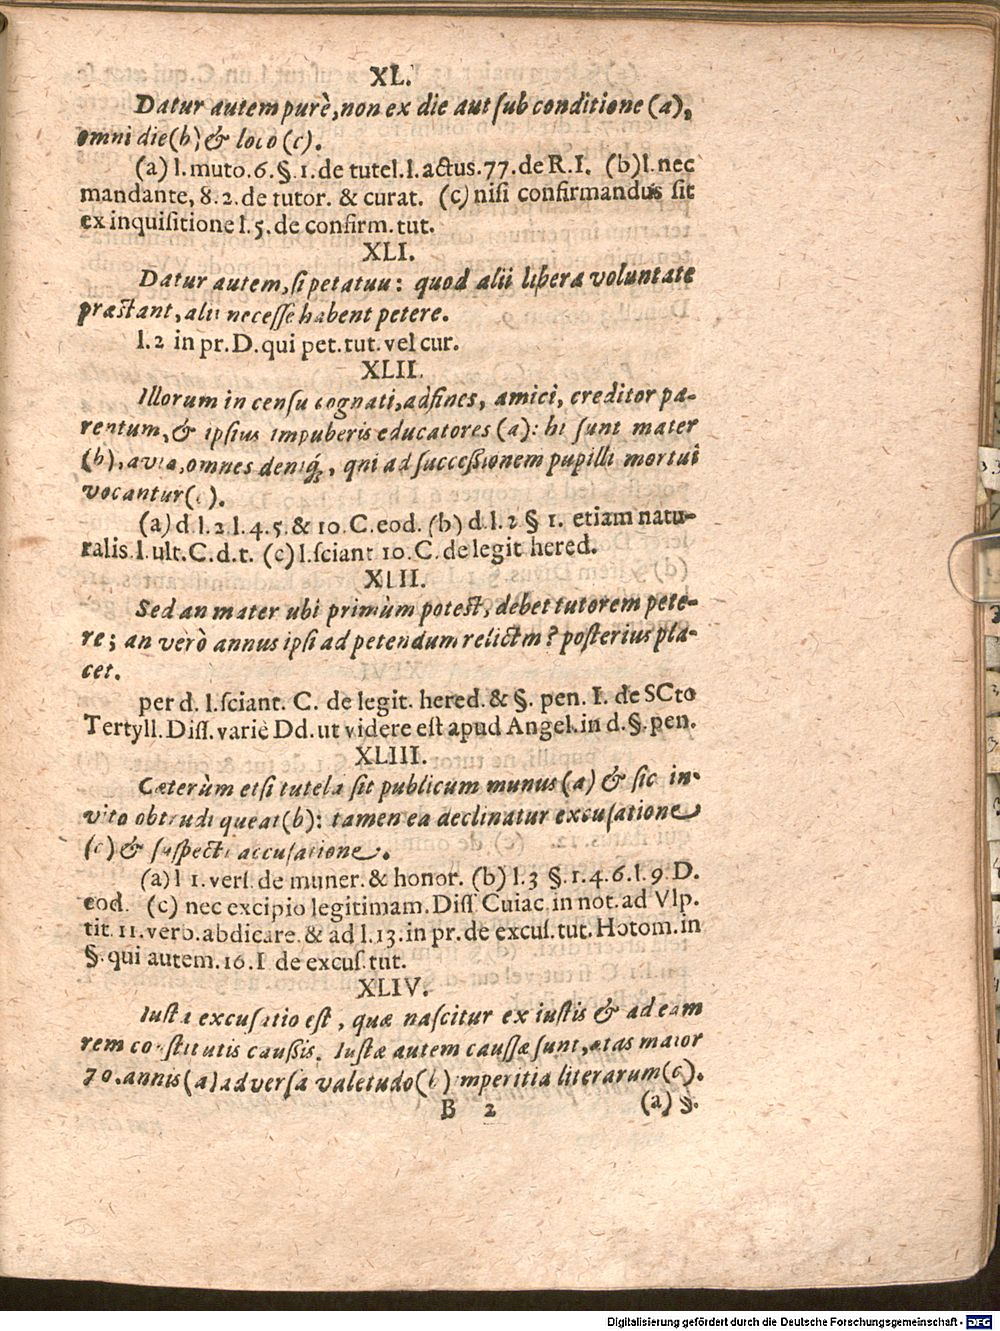 XL.
Datur autem purè, non ex die aut sub conditione (a),
omni die (b) & loco (c).
(a) l. muto. 6. §. 1. de tutel. l. actus. 77. de R. I. (b) l. nec
mandante, 8. 2. de tutor. & curat. (c) nisi confirmandus sit
ex inquisitione l. 5. de confirm. tut.
XLI.
Datur autem, si petatuu: quod alii libera voluntate
præstant, alii necesse habent petere.
l. 2 in pr. D. qui pet. tut. vel cur.
XLII.
Illorum in censu cognati, adfines, amici, creditor pa-
rentum, & ipsius impuberis educatores (a): hi sunt mater
(b), avia, omnes deniq́, qni ad successionem pupilli mortui
vocantur (c).
(a) d l. 2 l. 4. 5. & 10. C. eod. (b) d. l. 2 § 1. etiam natu-
ralis. l. ult. C. d. t. (c) l. sciant 10. C. de legit hered.
XLII.
Sed an mater ubi primùm potest, debet tutorem pete-
re; an verò annus ipsi ad petendum relictm? posterius pla-
cet.
per d. l. sciant. C. de legit. hered. & §. pen. I. de SCto
Tertyll. Diss. variè Dd. ut videre est apud Angel. in d. §. pen.
XLIII.
Cæterùm etsi tutela sit publicum munus (a) & sic in-
vito obtrudi queat (b): tamen ea declinatur excusatione
(c) & suspecti accusatione.
(a) l 1. vers. de muner. & honor. (b) l. 3 §. 1. 4. 6. l. 9. D.
eod. (c) nec excipio legitimam. Diss Cuiac. in not. ad Vlp.
tit. 11. verb. abdicare. & ad l. 13. in pr. de excus. tut. Hotom. in
§. qui autem. 16. I. de excus. tut.
XLIV.
Iusta excusatio est, quæ nascitur ex iustis & ad eam
rem constitutis caussis. Iustæ autem caussæ sunt, ætas maior
70. annis (a) adversa valetudo (b) imperitia literarum (c).
B 2
(a) §.
Digitalisierung gefördert durch die Deutsche Forschungsgemeinschaft - DFG